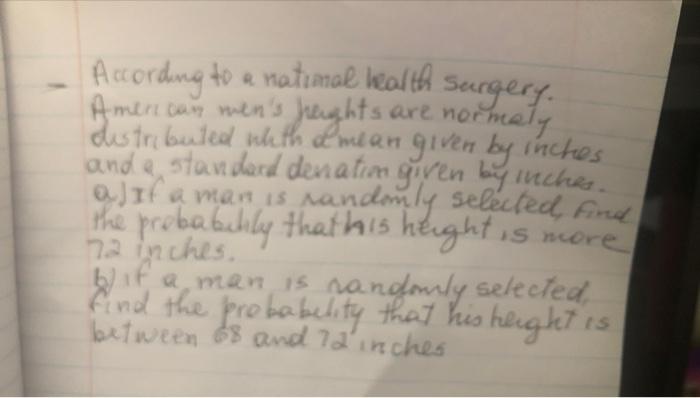 - According to a national health surgery.
American men's heights are normaly
distributed with a mean given by inches
and a standard deviation given by inches.
a) If a man is randomly selected, find
the probability that his height is more
72 inches.
b) if a man is randomly selected,
find the probability that his height is
between 68 and 72 inches